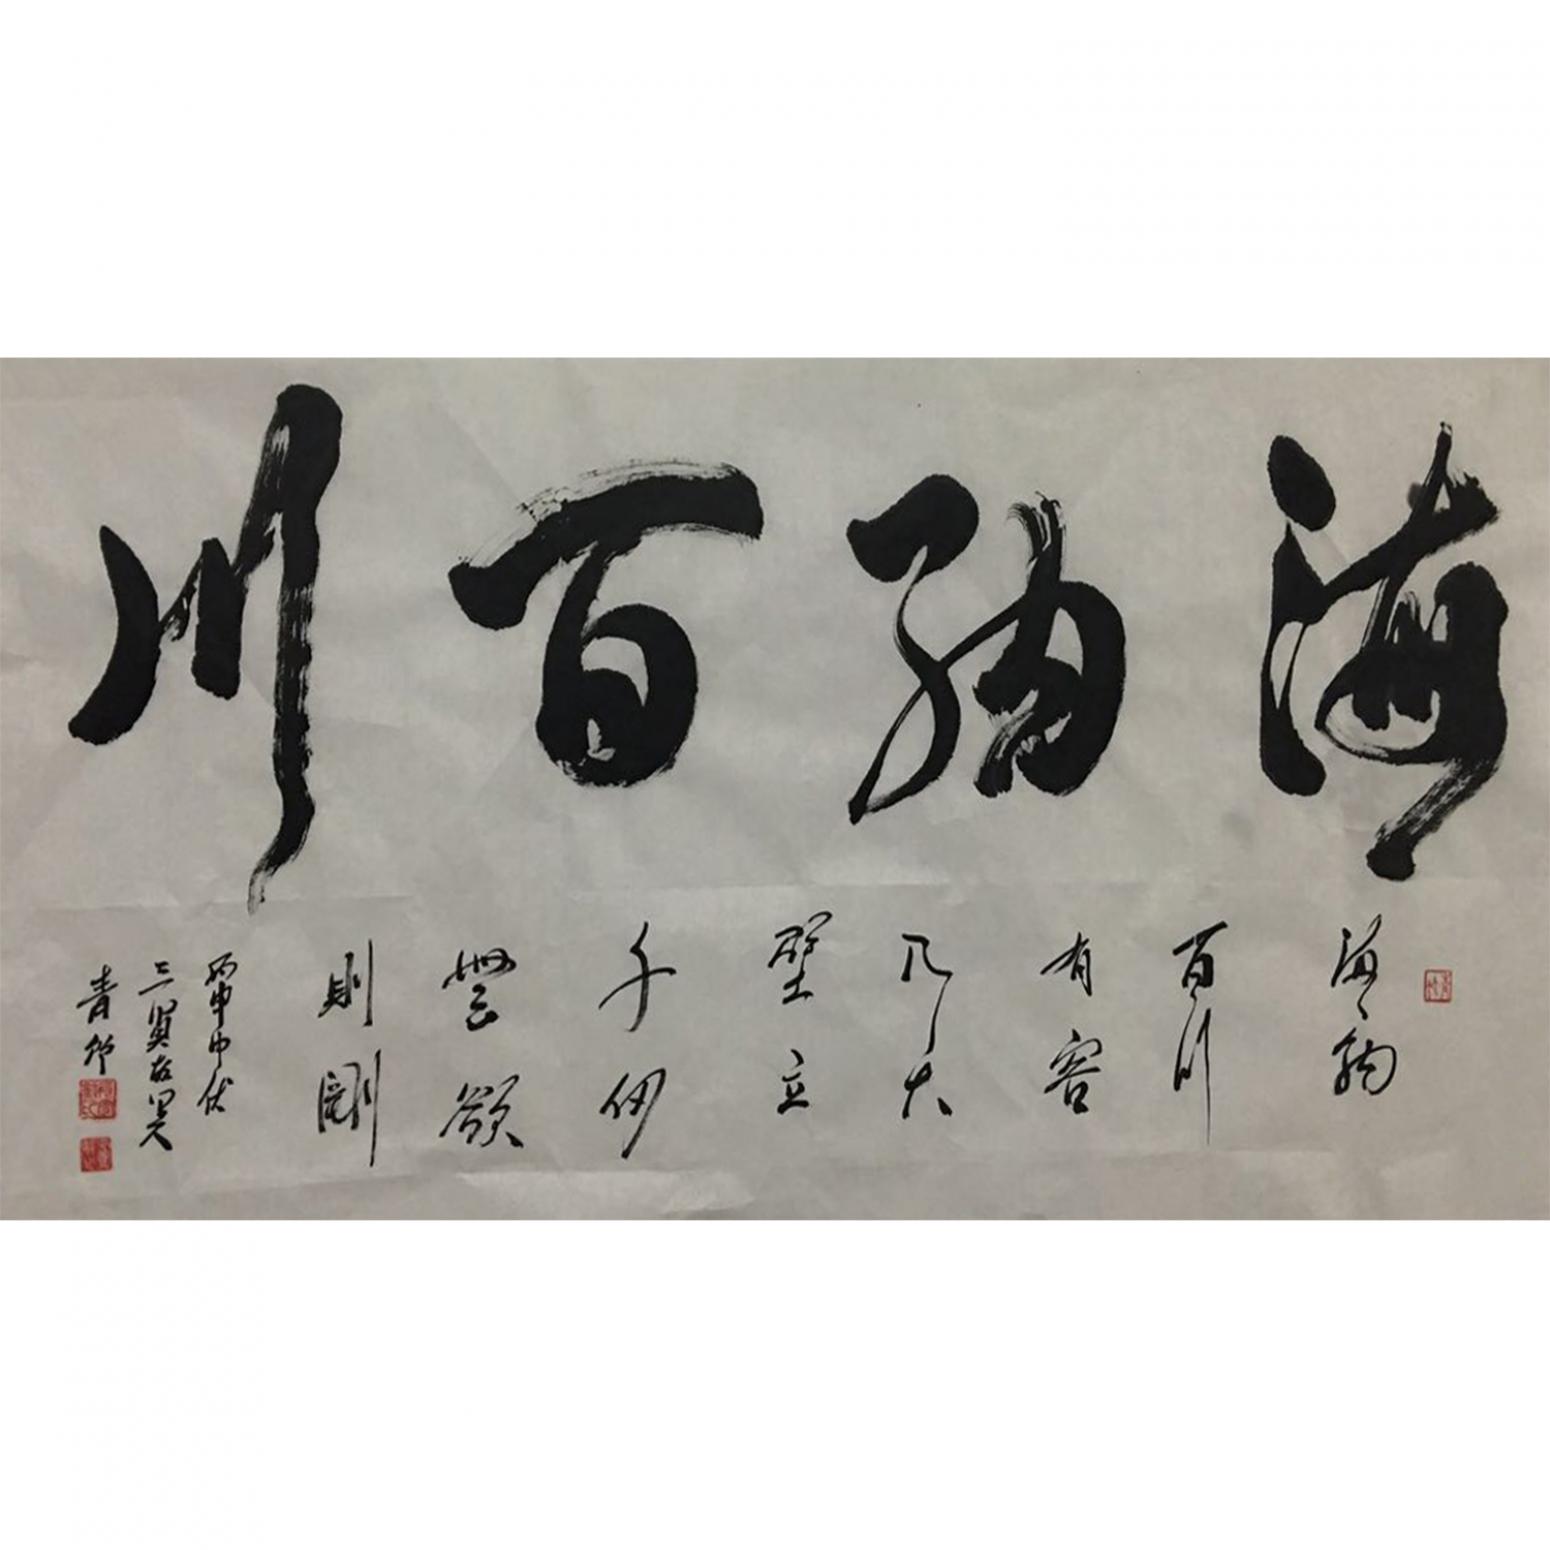 海納百川
海納
百川
有容
乃大
壁立
千仞
無欲
則剛
丙申中伏
三賢在墨人
青竹